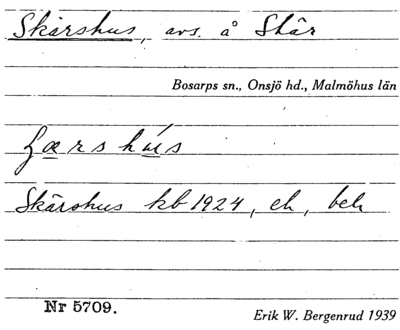 Skärshus, avs. å Skär
Bosarps sn., Onsjö hd., Malmöhus län
Skärshus kb 1924, eh, beh
Nr 5709.
Erik W. Bergenrud 1939